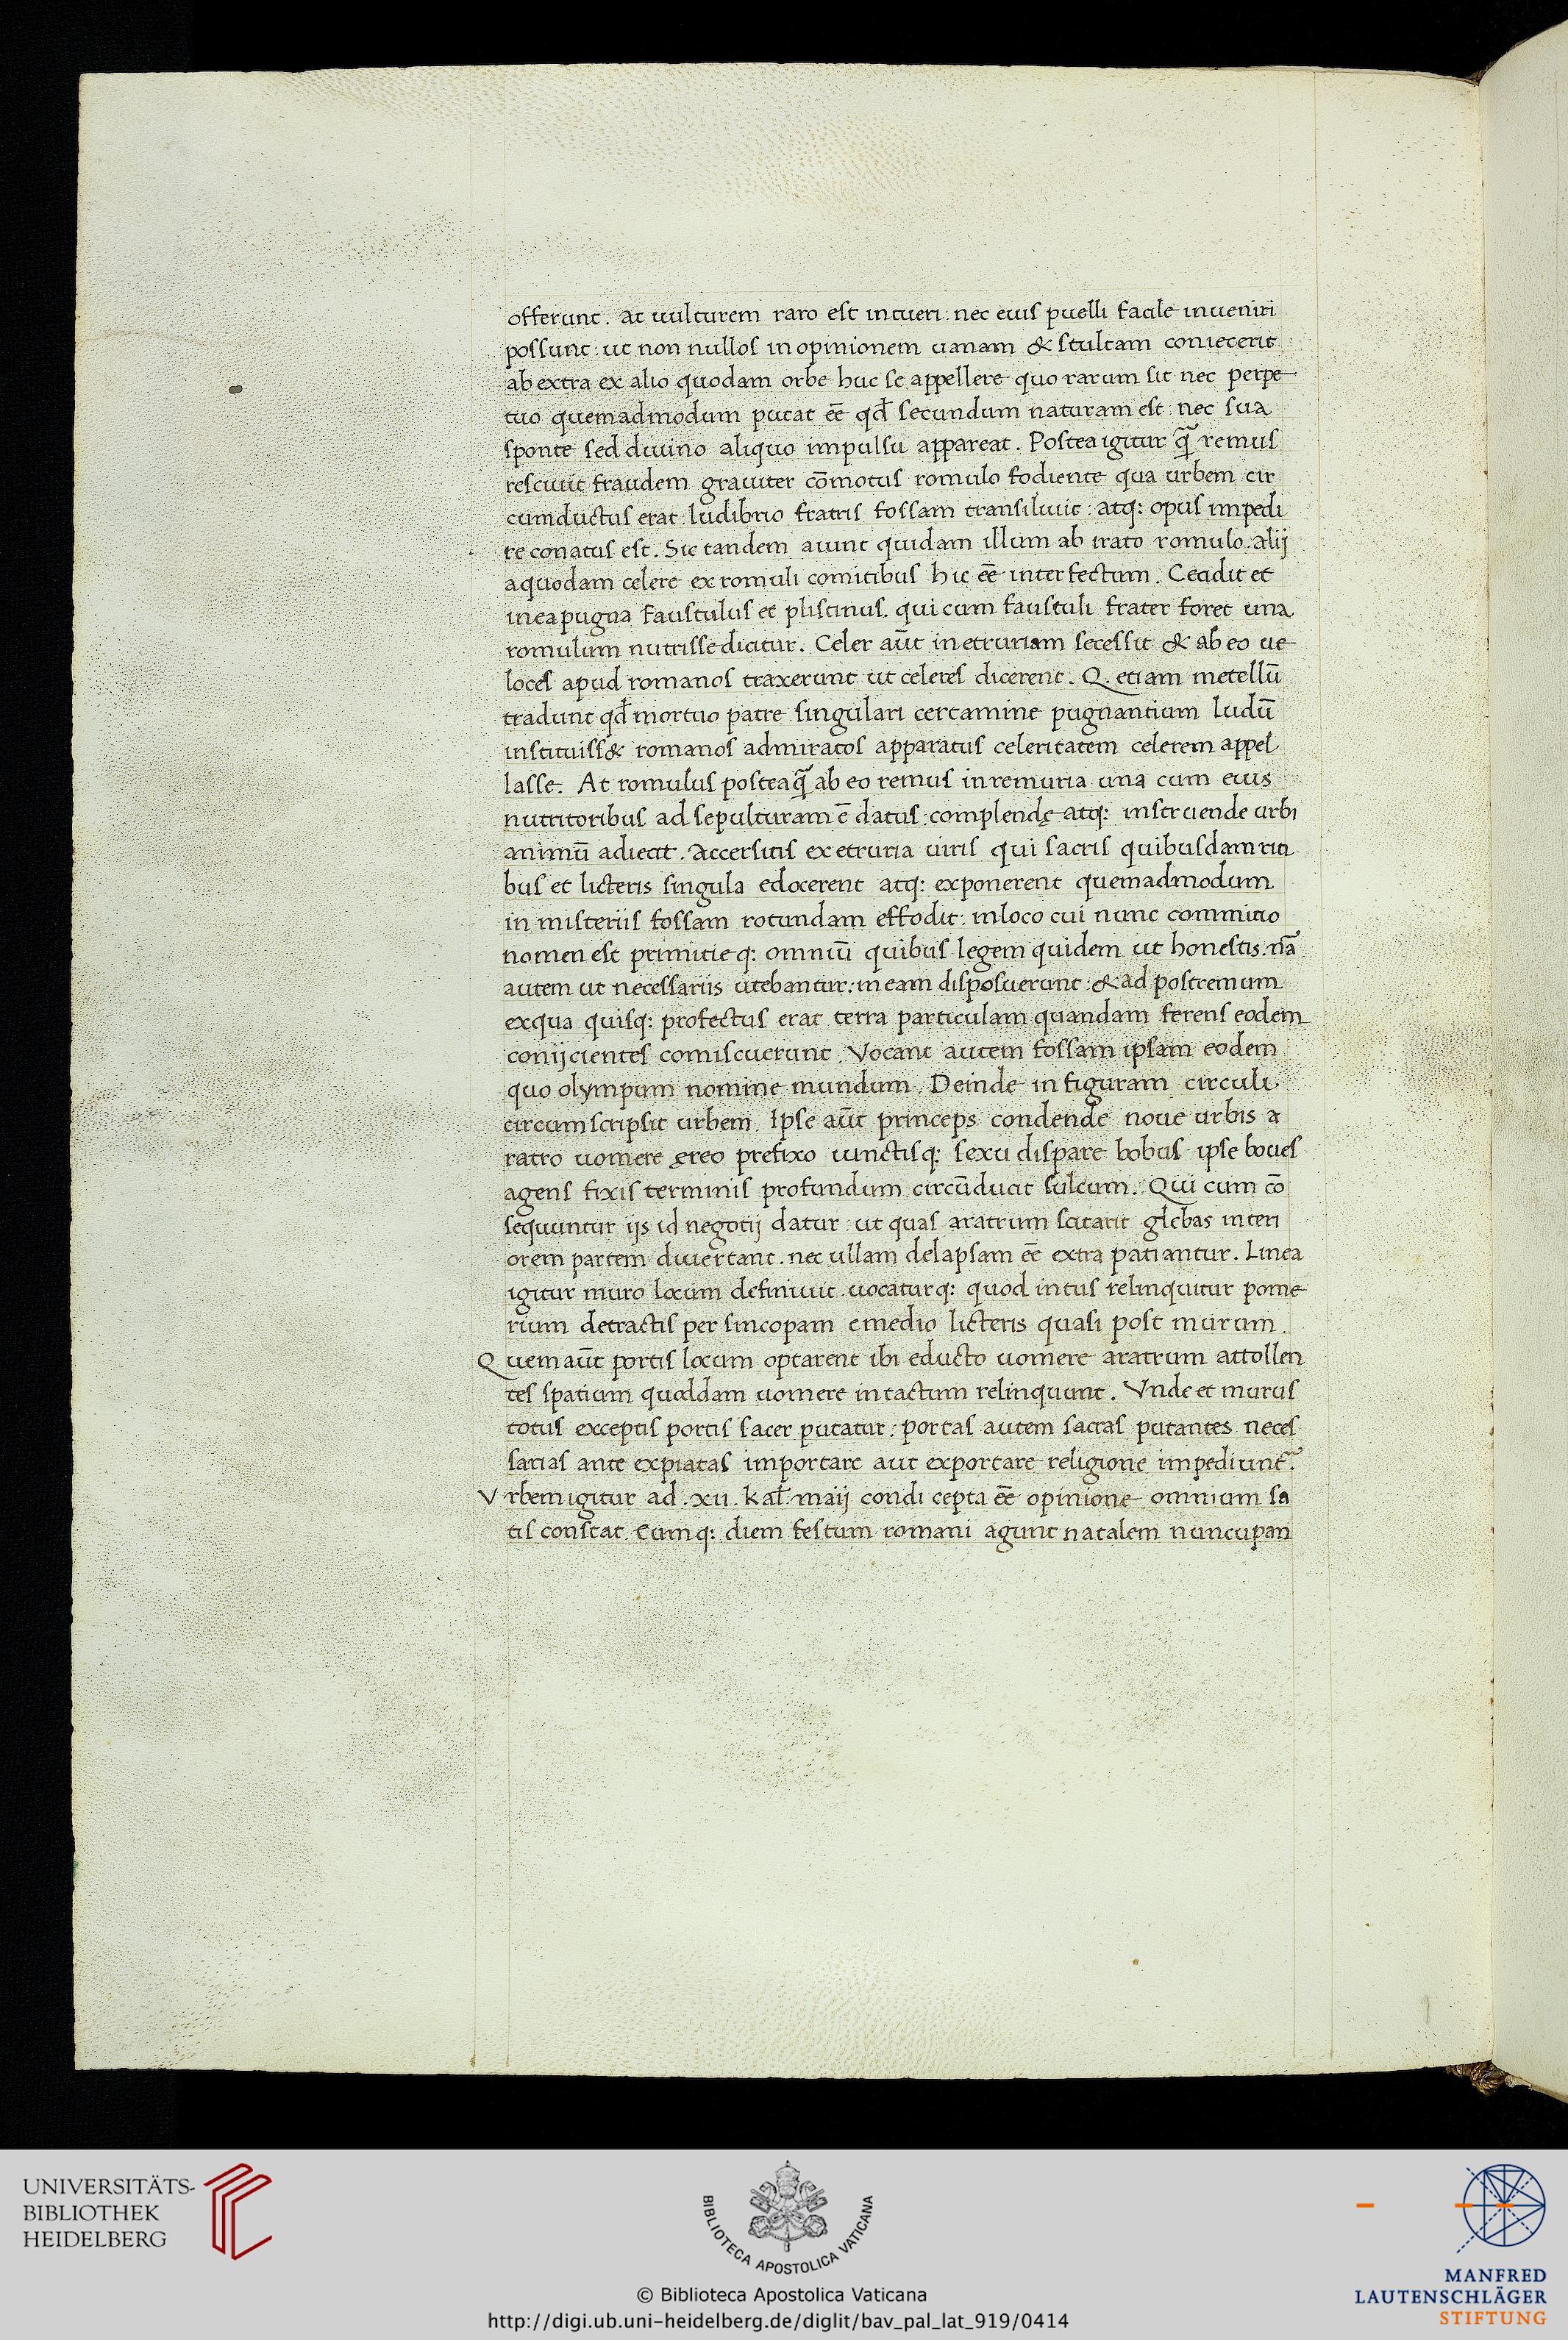 offerunt. at uulturem raro est intueri: nec eius puelli facile inueniri
possunt: ut non nullos in opinionem uanam & stultam coniecerit
ab extra ex alio quodam orbe huc se appellere quo rarum sit nec perpe
tuo quemadmodum putat eē qđ secundum naturam est nec sua
sponte sed diuino aliquo impulsu appareat. Postea igitur q̃ remus
resciuit fraudem grauiter cōmotus romulo fodiente qua urbem cir
cumducturus erat ludibrio fratris fossam transiliuit: atq: opus impedi
re conatus est. Sic tandem aiunt quidam illum ab irato romulo. alij
a quodam celere ex romuli comitibus hic eē interfectum. Cecidit et
in ea pugna faustulus et plistinus. qui cum faustuli frater foret una
romulum nutrisse dicitur. Celer aūt in etruriam secessit & ab eo ue
loces apud romanos traxerunt ut celeres dicerent. Q. etiam metellū
tradunt qđ mortuo patre singulari certamine pugnantium ludū
instituiss& romanos admiratos apparatus celeritatem celerem appel
lasse. At romulus postea q̃ ab eo remus in remuria una cum eius
nutritoribus ad sepulturam ē datus complendę atq: instruende urbi
animū adiecit. Accersitis ex etruria uiris qui sacris quibusdam riti
bus et licteris singula edocerent atq: exponerent quemadmodum
in misteriis fossam rotundam effodit: in loco cui nunc commitio
nomen est primitieq: omniū quibus legem quidem ut honestis. nā
autem ut necessariis utebantur: in eam disposuerunt: & ad postremum
ex qua quisq: profectus erat terra particulam quandam ferens eodem
conijcientes comiscuerunt. Vocant autem fossam ipsam eodem
quo olympum nomine mundum. Deinde in figuram circuli
circumscripsit urbem. Ipse aūt princeps condende noue urbis a
ratro uomere ęreo prefixo iunctisq: sexu dispare bobus ipse boues
agens fixis terminis profundum circūducit sulcum. Qui cum cō
sequuntur ijs id negotij datur: ut quas aratrum scitarit glebas interi
orem partem diuertant. nec ullam delapsam eē extra patiantur. Linea
igitur muro locum definiuit uocaturq: quod intus relinquitur pome
rium detractis per sincopam e medio licteris quasi post murum.
Quem aūt portis locum optarent ibi educto uomere aratrum attollen
tes spatium quoddam uomere intactum relinquunt. Vnde et murus
totus exceptis portis sacer putatur: portas autem sacras putantes neces
sarias ante expiatas importare aut exportare religione impediunt̃.
Vrbem igitur ad. xii. kał. maij condi cepta eē opinione omnium sa
tis constat. Eumq: diem festum romani agunt natalem nuncupan
UNIVERSITÄTS-
BIBLIOTHEK
HEIDELBERG
BIBLIOTECA APOSTOLICA VATICANA
© Biblioteca Apostolica Vaticana
http://digi.ub.uni-heidelberg.de/diglit/bav_pal_lat_919/0414
MANFRED
LAUTENSCHLÄGER
STIFTUNG